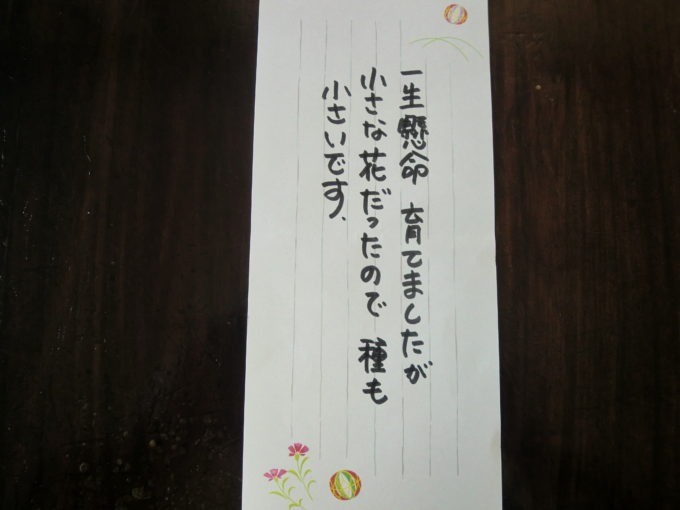 一生懸命 育てましたが
小さな花だったので 種も
小さいです、